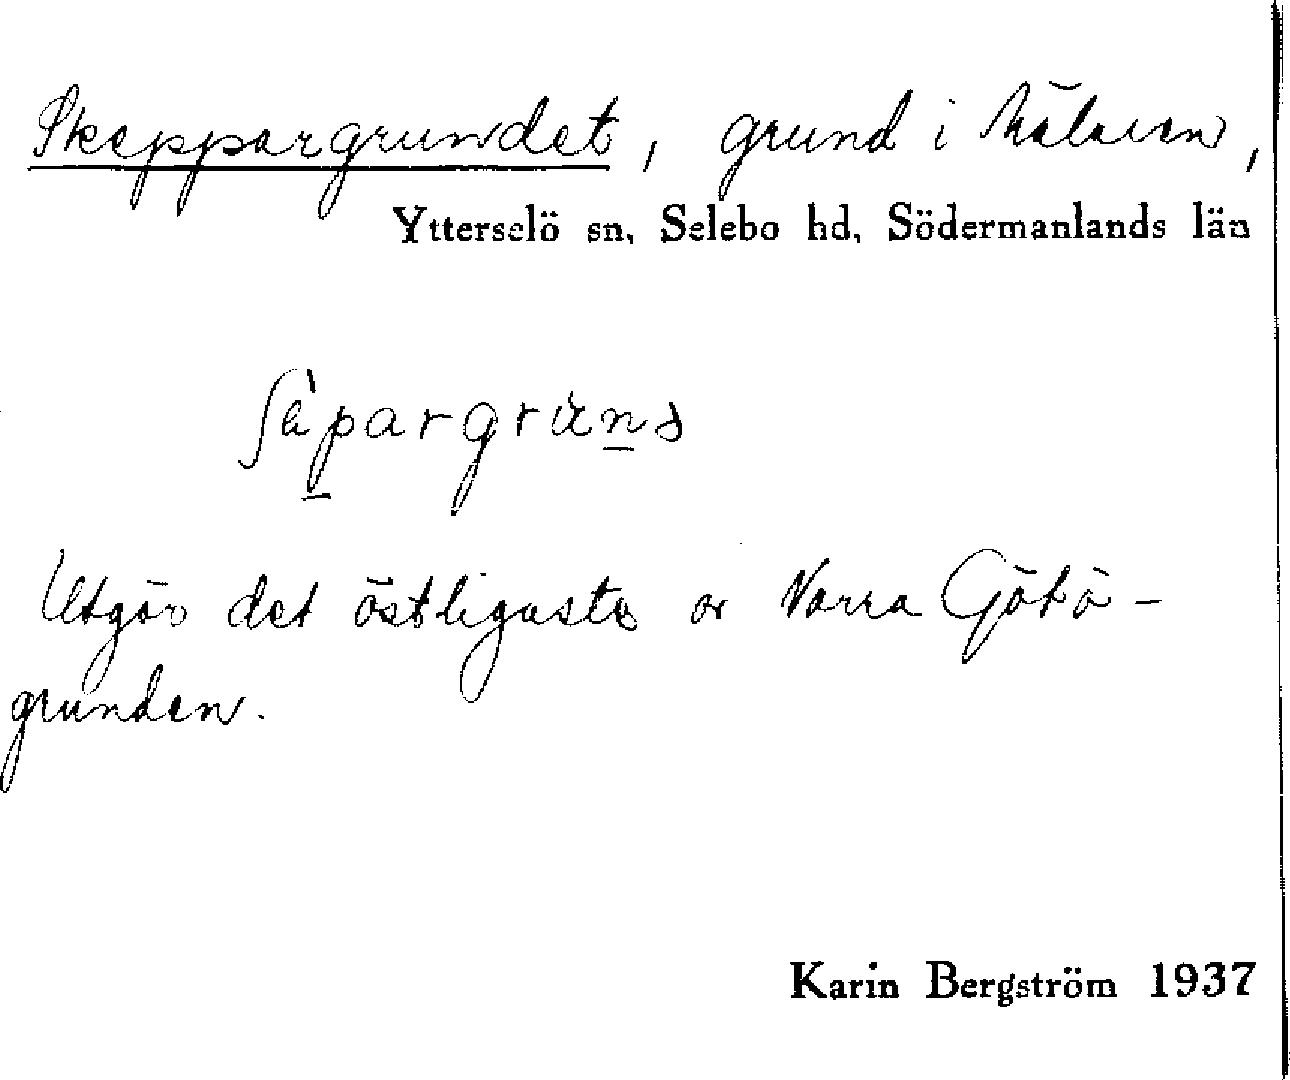 Skeppargrundet, grund i Mälaren,
Ytterselö sn, Selebo hd, Södermanlands län
Utgör det östligaste av Norra Götö-
grunden.
Karin Bergström 1937